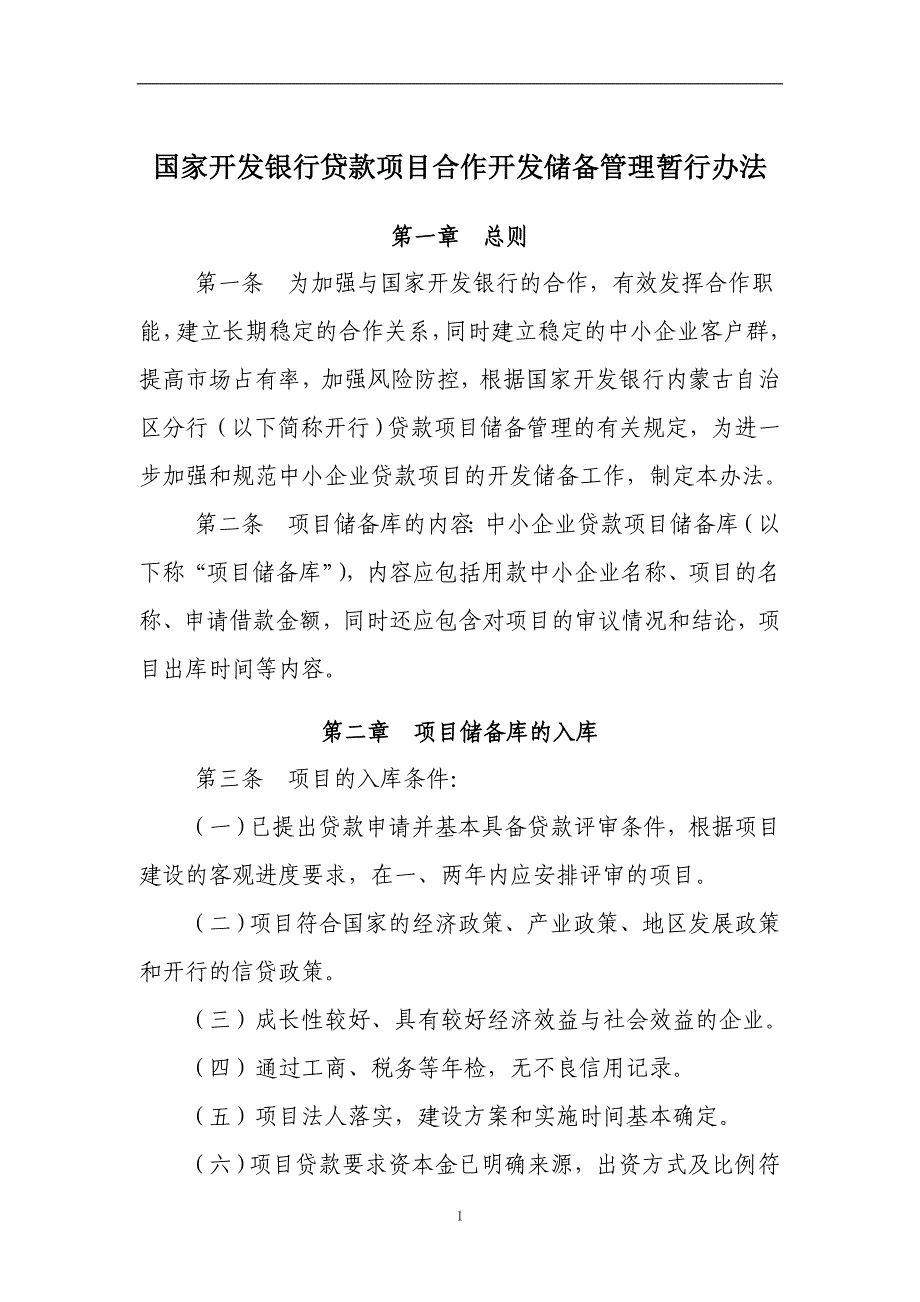 国家开发银行贷款项目合作开发储备管理暂行办法
第一章　总则
第一条　为加强与国家开发银行的合作，有效发挥合作职
能，建立长期稳定的合作关系，同时建立稳定的中小企业客户群，
提高市场占有率，加强风险防控，根据国家开发银行内蒙古自治
区分行（以下简称开行）贷款项目储备管理的有关规定，为进一
步加强和规范中小企业贷款项目的开发储备工作，制定本办法。
第二条　项目储备库的内容：中小企业贷款项目储备库（以
下称“项目储备库”），内容应包括用款中小企业名称、项目的名
称、申请借款金额，同时还应包含对项目的审议情况和结论，项
目出库时间等内容。
第二章　项目储备库的入库
第三条　项目的入库条件：
（一）已提出贷款申请并基本具备贷款评审条件，根据项目
建设的客观进度要求，在一、两年内应安排评审的项目。
（二）项目符合国家的经济政策、产业政策、地区发展政策
和开行的信贷政策。
（三）成长性较好、具有较好经济效益与社会效益的企业。
（四）通过工商、税务等年检，无不良信用记录。
（五）项目法人落实，建设方案和实施时间基本确定。
（六）项目贷款要求资本金已明确来源，出资方式及比例符
1